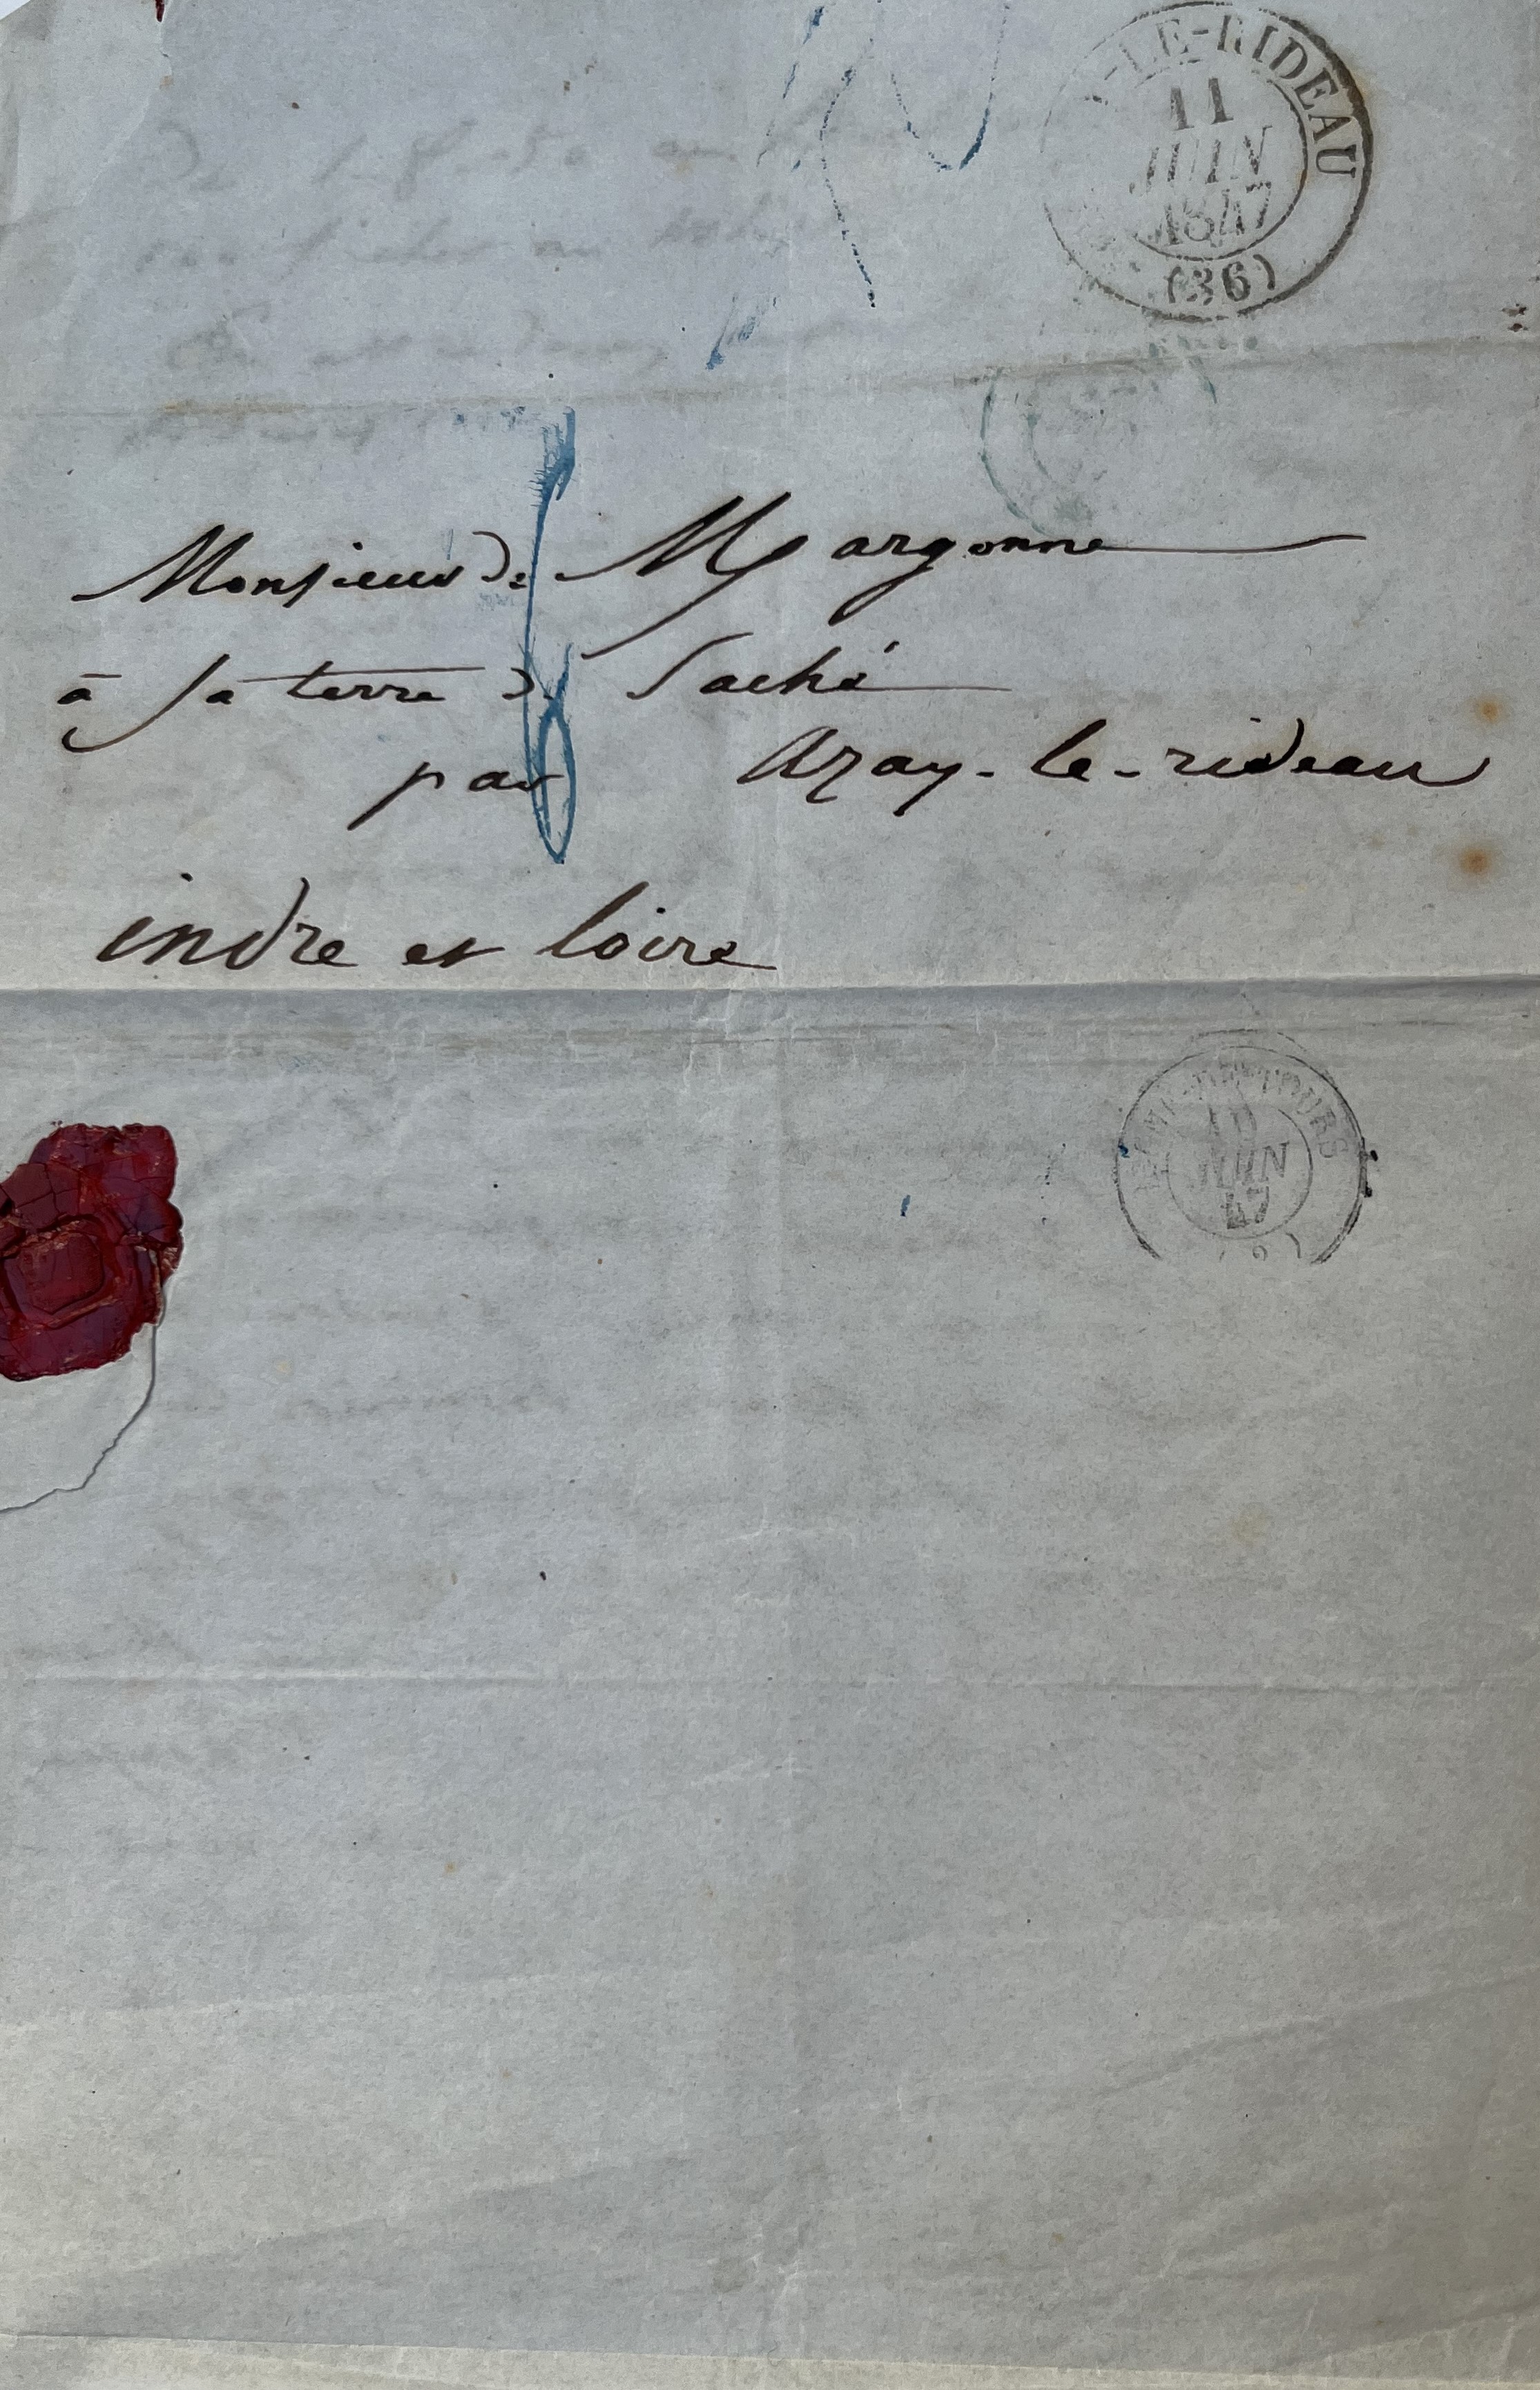 -LE-RIDEAU
11
JUIN
1847
(36)
Monsieur de Margonne
à sa terre de Saché
par Azay-le-rideau
indre et loire
TOURS
JUIN
47